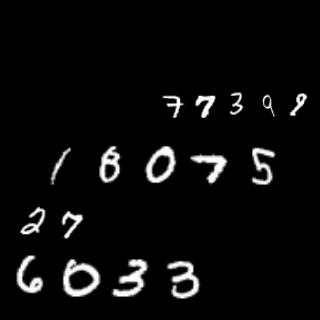 77399
18075
27
6033